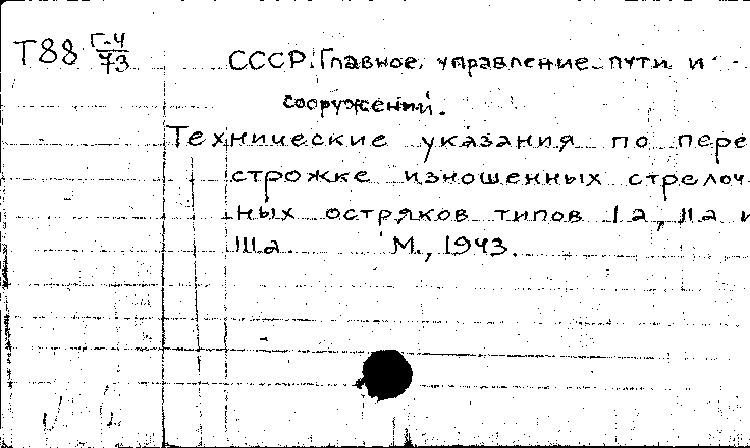 Т88 Г-4/73
СССР. Главное управление пути и
сооружений.
Технические указания по пере
строжке изношенных стрелоч
ных остряков типов Iа, IIа и
IIIа. М., 1943.